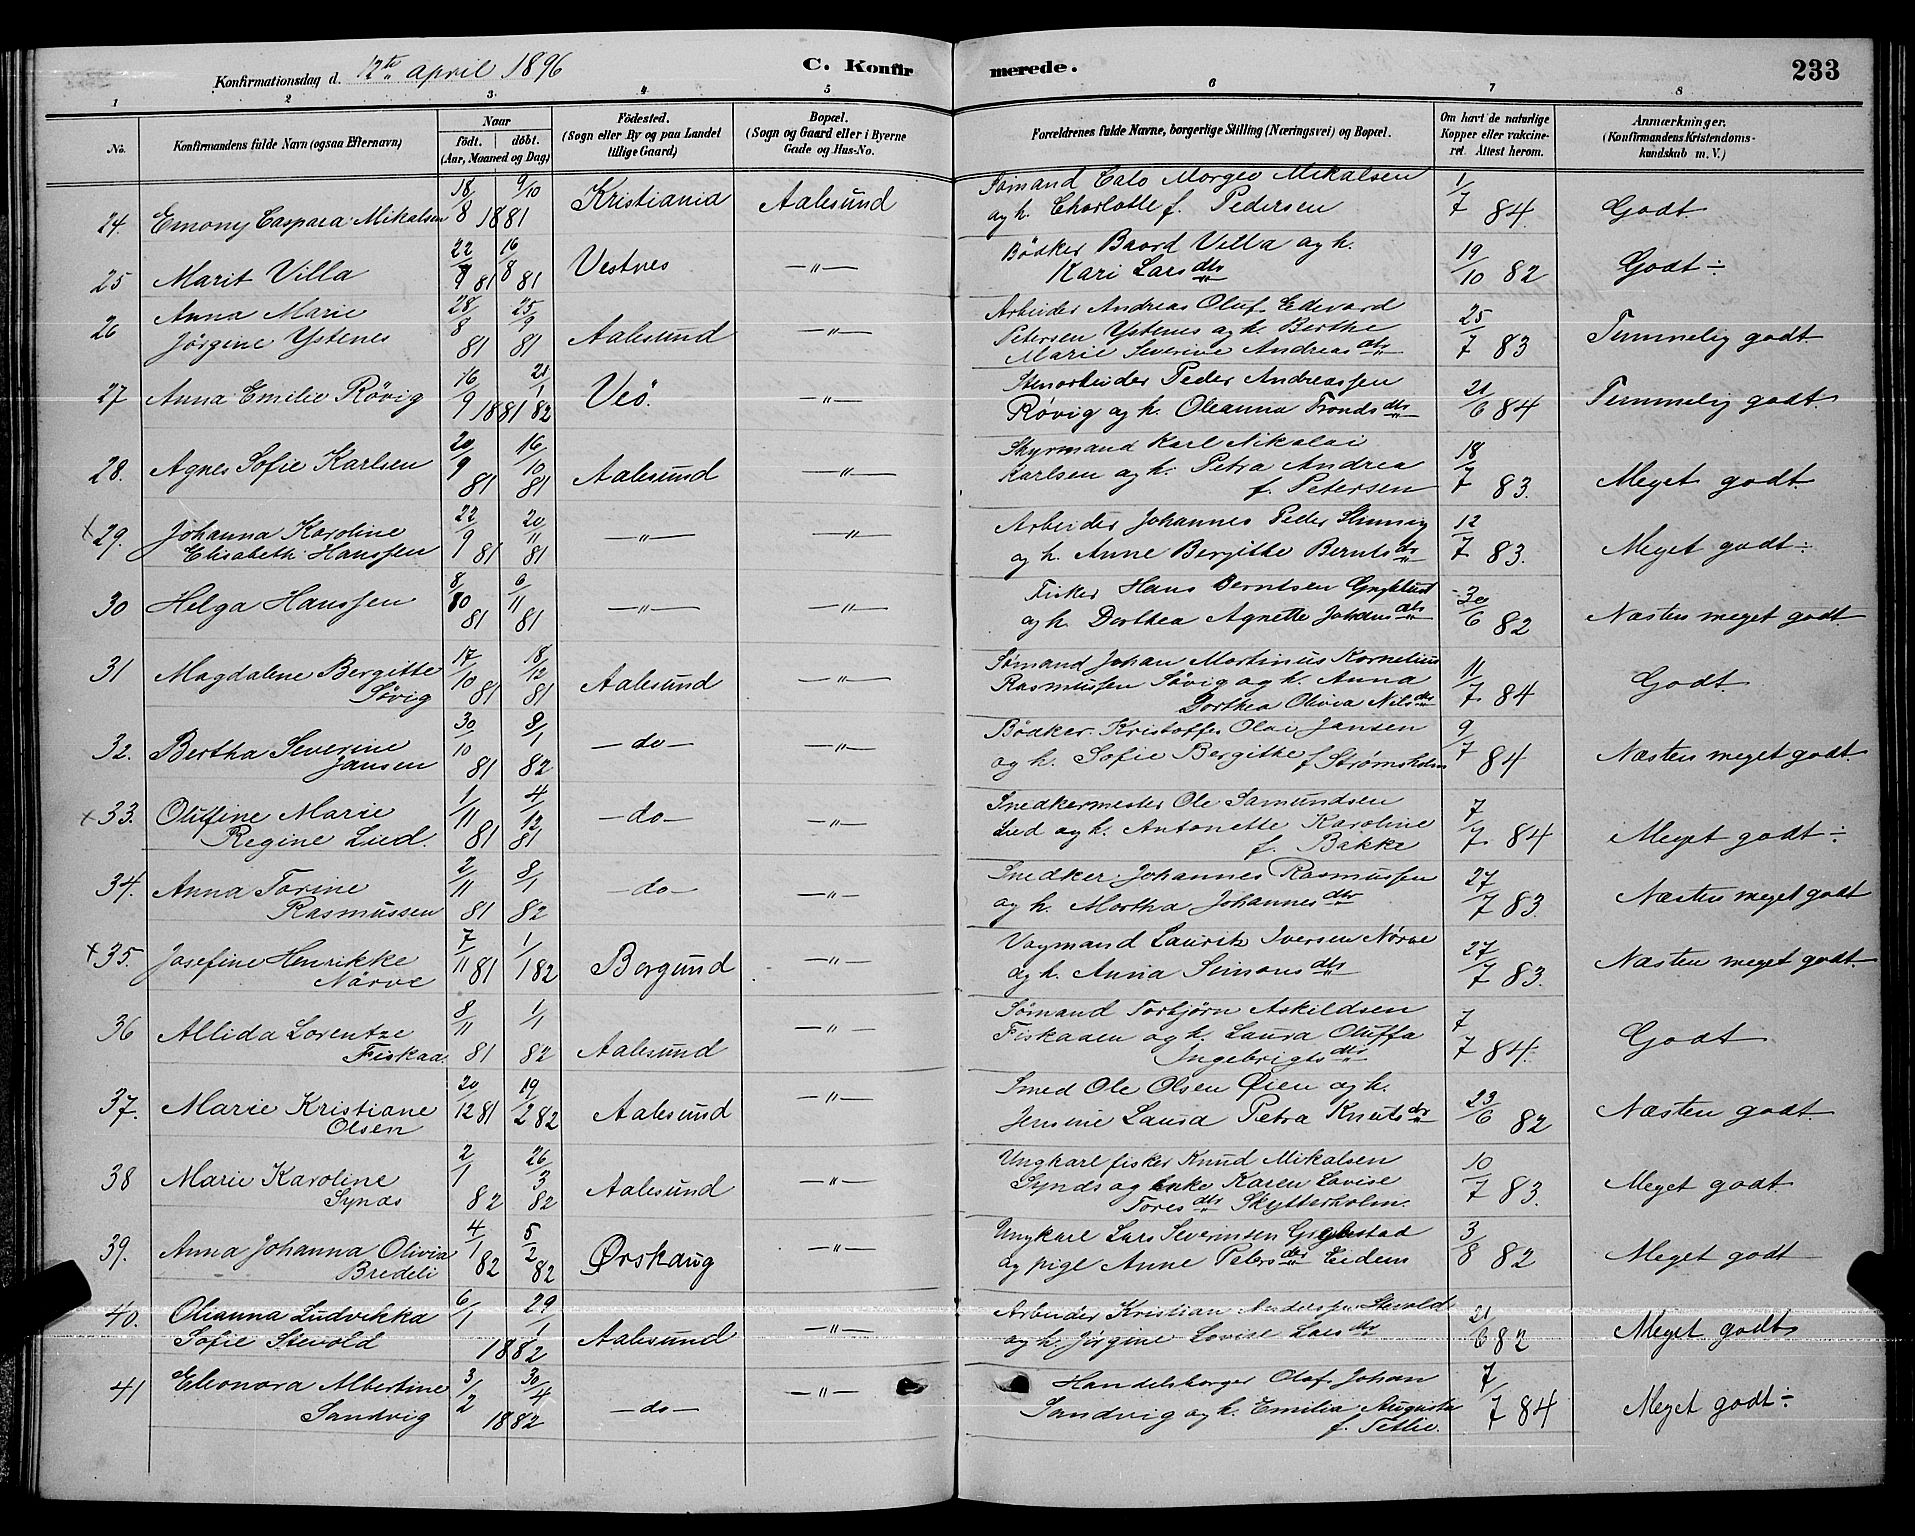 Konfirmationsdag d. 12te april 1896
C. Konfirmerede.
233
1 2 3 4 5 6 7 8
No.
Konfirmandens fulde Navn (ogsaa Efternavn)
Naar
født. døbt.
(Aar, Maaned og Dag)
Fødested.
(Sogn eller By og paa Landet
tillige Gaard)
Bopæl.
(Sogn og Gaard eller i Byerne
Gade og Hus-No.
Forældrenes fulde Navne, borgerlige Stilling (Næringsvei) og Bopæl.
Om havt de naturlige
Kopper eller vakcine-
ret. Attest herom.
Anmærkninger.
(Konfirmandens Kristendoms-
kundskab m. V.)
24. Emony Caspara Mikalsen 18/8 9/10 1881 Kristiania Aalesund
Sømand Mikalsen
og h. Charlotte f. Pedersen 1/7 84. Godt
25 Marit Villa 22/7 81 16/8 81 Vestnes —"—
Bödker Baard Villa og h.
Kari Larsdtr 19/10 82 Godt÷
26 Anna Marie
Jörgine Ystenes 28/8 81 25/9 81 Aalesund —"—
Arbeider Andreas Oluf Edevard
Petersen Ystenes og h. Berthe
Marie Severine Andreasdtr 25/7 83 Temmelig godt.
27 Anna Emilie Rövig 16/9 1881 21/1 82 Veö. —"—
Stenarbeider Peder Andreassen
Rövig og h. Oleanna Trondsdtr 21/6 84 Temmelig godt.
28. Agnes Sofie Karlsen 20/9 81 16/10 81 Aalesund —"—
Styrmand Karl Nikolai
Karlsen og h. Petra Andrea
f. Petersen 18/7 83. Meget godt
+29. Johanna Karoline
Elisabeth Hanssen 22/9 81 20/11 81 —"— —"—
Arbeider Johannes Peder
og h. Anne Bergitte Berntsdtr 12/7 83. Meget godt÷
30 Helga Hanssen 8/10 81 6/11 81 —"— —"—
Fisker Hans Berntsen
og h. Dorthea Agnette Johansdtr 30/6 82 Næsten meget godt
31 Magdalene Bergitte
Søvig 17/10 81 18/12 81 Aalesund —"—
Sømand Johan Martinus Kornelius
Rasmussen Søvig og h. Anna
Dorthea Olivia Nilsdtr 11/7 84 Godt.
32. Bertha Severine
Jansen 30/10 81 8/1 82 —do— —"—
Bödker Kristoffer Olai Jansen
og h. Sofie Bergitte f. Strømsholm 9/7 84 Næsten meget godt.
+33. Olufine Marie
Regine Lied. 1/11 81 4/12 81 —do— —"—
Snedkermester Ole Samundsen
Lied og h. Antonette Karoline
f. Bakke 7/7 84 Meget godt÷
34. Anna Torine
Rasmussen 2/11 81 8/1 82 —do— —"—
Snedker Johannes Rasmussen
og h. Martha Johannesdtr 27/7 83. Næsten meget godt
+35. Josefine Henrikke
Nörve 7/11 81 1/1 82 Borgund —"—
Laurik Iversen Nørve
og h. Anna Simonsdtr 27/7 83. Næsten meget godt.
36 Allida Lorentze
Fiskaa 8/11 81 1/1 82 Aalesund —"—
Sømand Torbjörn Askildsen
Fiskaaen og h. Laura Oluffa
Ingebrigtsdtr 7/7 84. Godt
37. Marie Kristiane
Olsen 20/12 81 19/2 82 Aalesund —"—
Smed Ole Olsen Øien og h.
Jensine Laura Petra Knutsdtr 23/6 82 Næsten godt.
38 Marie Karoline
Synes 2/1 82 26/3 82 Aalesund —"—
Ungkarl fisker Knud Mikalsen
Synes og enke Karen Lovise
Toresdtr Skytterholm. 10/7 83. Meget godt.
39. Anna Johanna Olivia
Bredeli 4/1 82 5/2 82 Ørskaug —"—
Ungkarl Lars Severinsen
og pige Anne Petersdtr Eidem 3/8 82 Meget godt
40. Olianna Ludvikka
Sofie Stevold 6/1 29/1 1882 Aalesund —"—
Arbeider Kristian Anderssen Stevold
og h. Jörgine Lovise Larsdtr 21/6 82 Meget godt
41 Eleonora Albertine
Sandvig 3/2 30/4 1882 —do— —"—
Handelsborger Olaf Johan
Sandvig og h. Emilia Augusta
f. Tetlie. 7/7 84 Meget godt÷